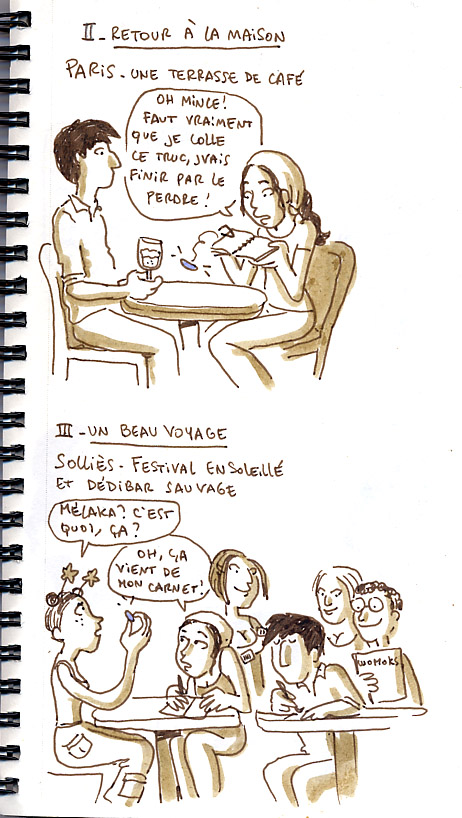 II - RETOUR À LA MAISON
PARIS - UNE TERRASSE DE CAFÉ
OH MINCE!
FAUT VRAIMENT
QUE JE COLLE
CE TRUC, J'VAIS
FINIR PAR LE
PERDRE!
III - UN BEAU VOYAGE
SOLLIÈS - FESTIVAL ENSOLEILLÉ
ET DÉDIBAR SAUVAGE
MÉLAKA? C'EST
QUOI, ÇA?
OH, ÇA
VIENT DE
MON CARNET!
WOMOKS